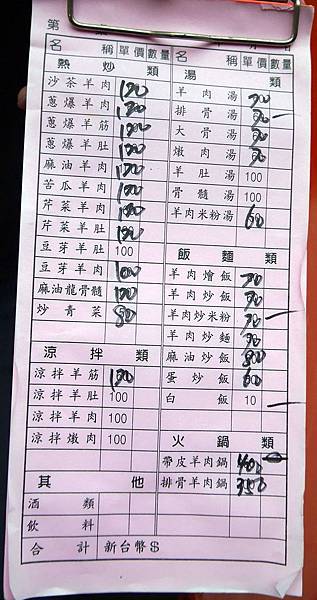 第
名 稱 單價 數量
熱 炒 類
沙茶羊肉 120
蔥爆羊肉 120
蔥爆羊筋
蔥爆羊肚 120
麻油羊肉 120
苦瓜羊肉 120
芹菜羊肉
芹菜羊肚
豆芽羊肚 100
豆芽羊肉 100
麻油龍骨髓 120
炒青菜 50
涼 拌 類
涼拌羊筋 120
涼拌羊肚 100
涼拌羊肉 100
涼拌燉肉 100
其 他
酒 類
飲 料
合 計 新台幣$
名 稱 單價 數量
湯 類
羊肉湯
排骨湯
大骨湯
燉肉湯
羊肚湯 100
骨髓湯 100
羊肉米粉湯 60
飯 麵 類
羊肉燴飯 70
羊肉炒飯
羊肉炒米粉 70
羊肉炒麵
麻油炒飯
蛋炒飯 60
白飯 10
火 鍋 類
帶皮羊肉鍋 400
排骨羊肉鍋 350